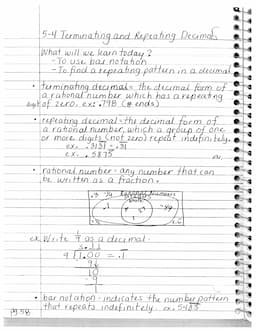 5-4 Terminating and Repeating Decimals
What will we learn today?
- To use bar notation
- To find a repeating pattern in a decimal
• terminating decimal - the decimal form of
a rational number which has a repeating
digit of zero. ex: .798 (# ends)
• repeating decimal - the decimal form of
a rational number, which a group of one
or more digits (not zero) repeat indefinitely.
ex. .3131 = .31
ex. .5875
• rational number - any number that can
be written as a fraction.
ex. Write 1/9 as a decimal.
9 1.00 = .1
9
10
9
1
• bar notation - indicates the number pattern
that repeats indefinitely. ex. 5483
pg 58